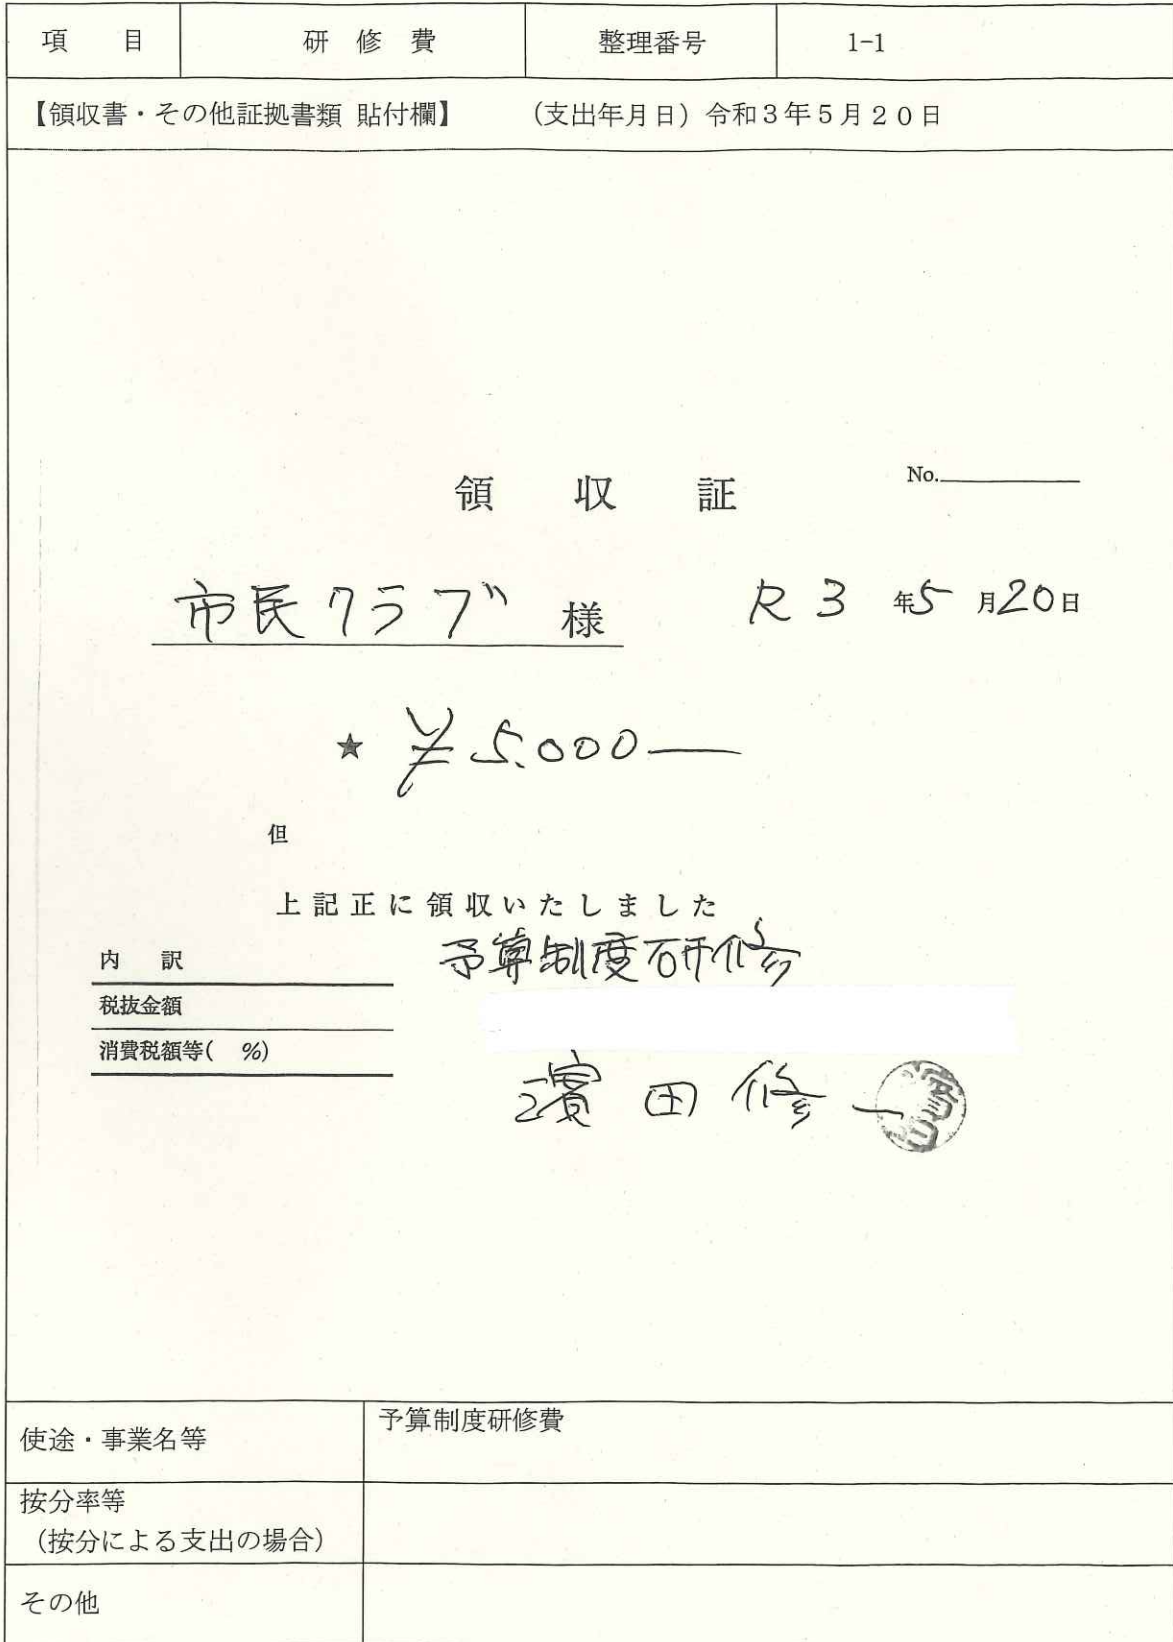 項 目 研 修 費 整理番号 1-1
【領収書・その他証拠書類 貼付欄】 (支出年月日) 令和3年5月20日
領 収 証 No.
市民クラブ 様 R3年5月20日
★ ¥5.000―
但
上記正に領収いたしました
内 訳 予算制度研修
税抜金額
消費税額等( %)
濱田修一
使途・事業名等 予算制度研修費
按分率等
(按分による支出の場合)
その他